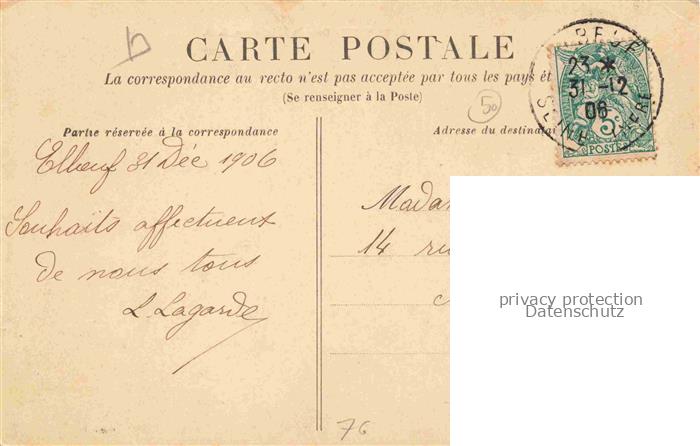 b
CARTE POSTALE
La correspondance au recto n'est pas acceptée par tous les pays ét
(Se renseigner à la Poste)
50
23 *
31 -12
06
SEINE
5c
POSTES
Partie réservée à la correspondance
Adresse du destinatai
Elbeuf 31 Déc 1906
Souhaits affectueux
de nous tous
L. Lagarde
Madam
14 ru
privacy protection
Datenschutz
76